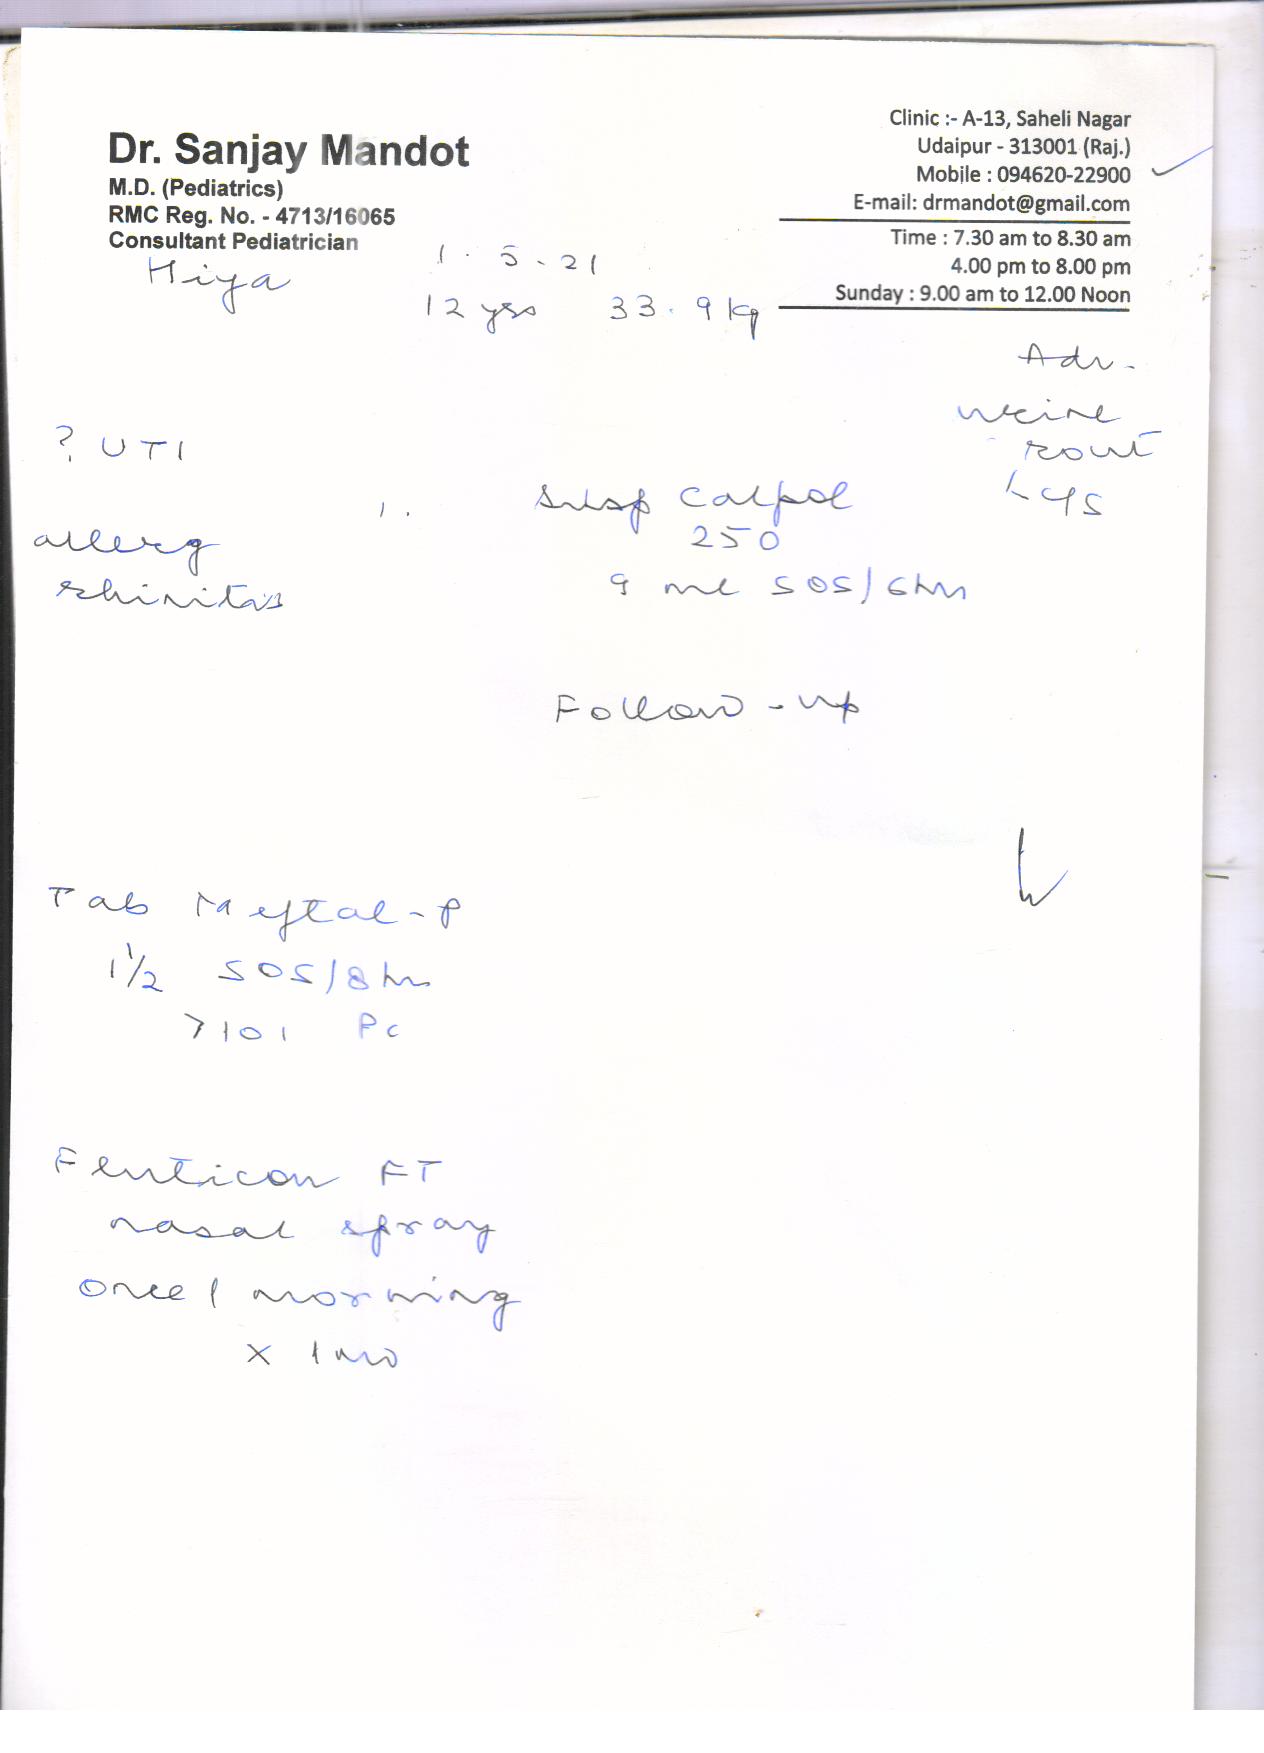 Dr. Sanjay Mandot
M.D. (Pediatrics)
RMC Reg. No. - 4713/16065
Consultant Pediatrician
Clinic :- A-13, Saheli Nagar
Udaipur - 313001 (Raj.)
Mobile : 094620-22900
E-mail: drmandot@gmail.com
Time : 7.30 am to 8.30 am
4.00 pm to 8.00 pm
Sunday : 9.00 am to 12.00 Noon
Hiya
1.5.21
12 yrs 33.9 kg
Adv.
urine
rout
c/s
? UTI
allerg
rhinitis
1. Susp Calpol
250
9 ml SOS/6hr
Follow-up
Tab Meftal-P
1 1/2 SOS/8hr
>101 Pc
FT
nasal spray
once/morning
x 1 mo